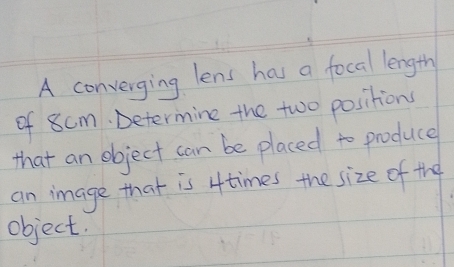 A converging lens has a focal length
of 8cm. Determine the two positions
that an object can be placed to produce
an image that is 4times the size of the
object.